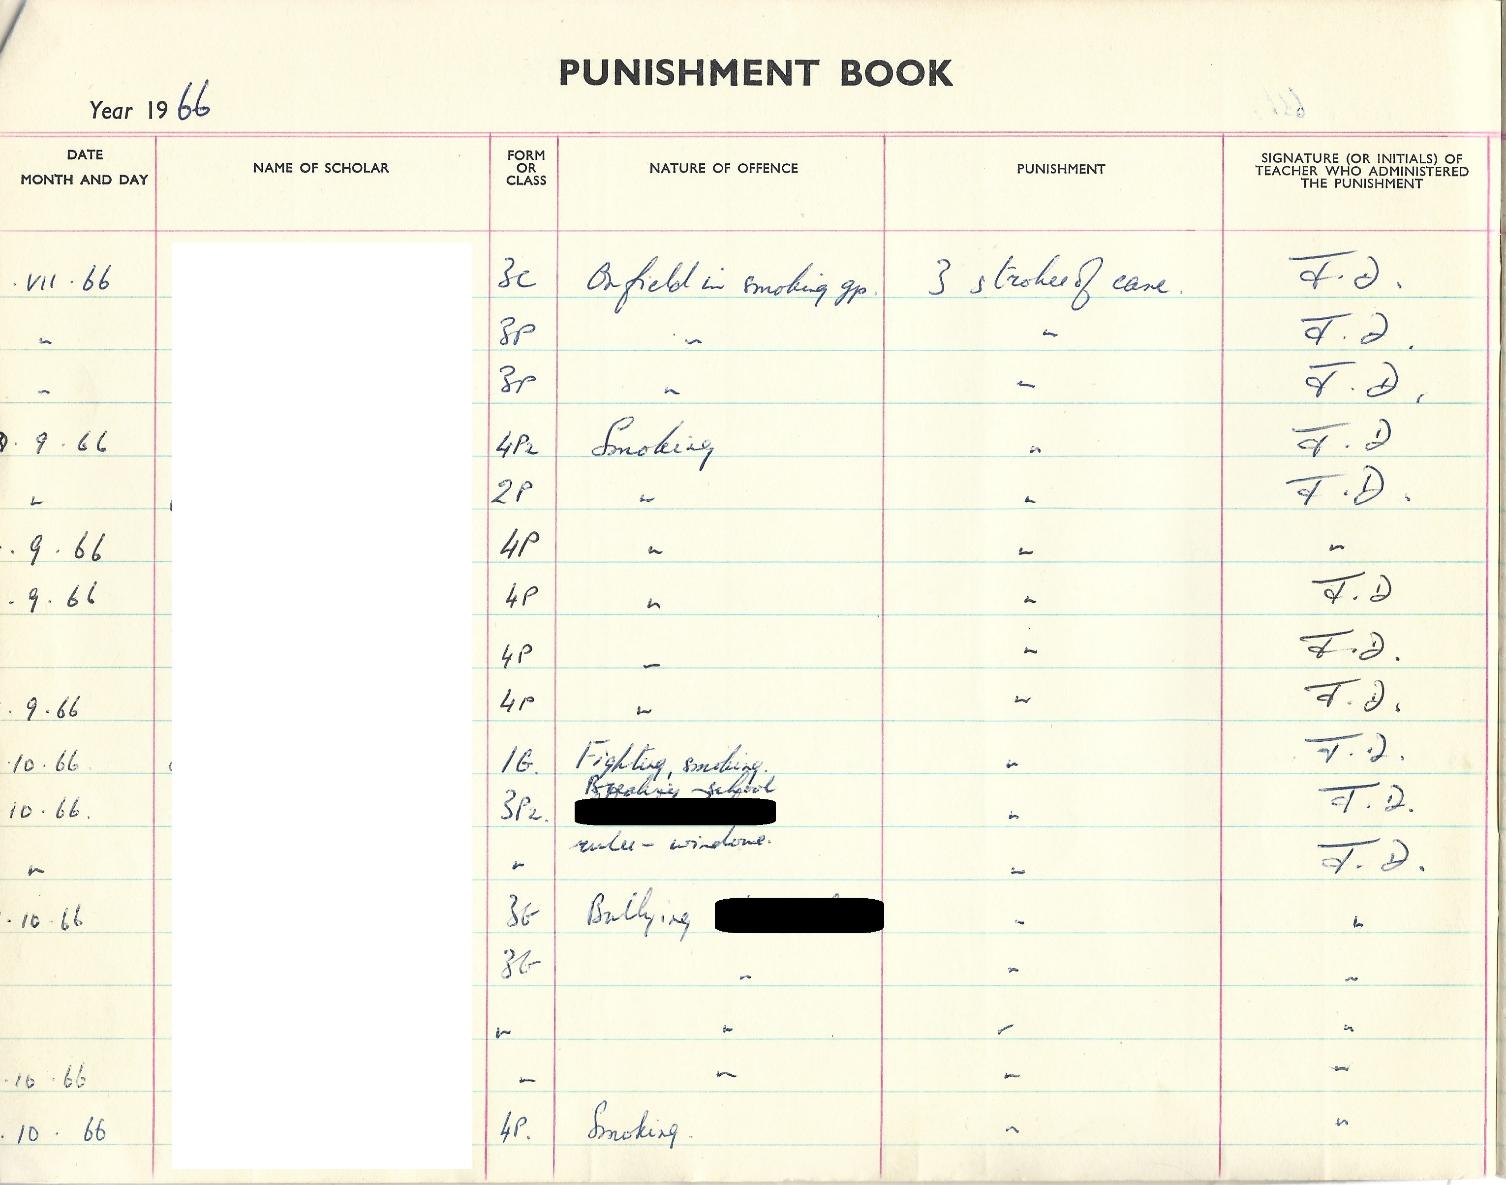 PUNISHMENT BOOK
Year 1966
DATE MONTH AND DAY NAME OF SCHOLAR FORM OR CLASS NATURE OF OFFENCE PUNISHMENT SIGNATURE (OR INITIALS) OF TEACHER WHO ADMINISTERED THE PUNISHMENT
. VII . 66 3C On field in smoking gp. 3 strokes of cane. F.D.
" 3P " " F.D.
" 3P " " F.D.
. 9 . 66 4P2 Smoking " F.D
" 2P " " F.D.
. 9 . 66 4P " " "
. 9 . 66 4P " " F.D
4P " " F.D.
. 9 . 66 4P " " F.D.
. 10 . 66 1G. Fighting, smoking. " F.D.
10 . 66. 3P2. Breaking school " F.D.
" " rules - windows. " F.D.
. 10 . 66 3G Bullying " "
3G " " "
" " " "
. 10 . 66 " " " "
. 10 . 66 4P. Smoking. " "